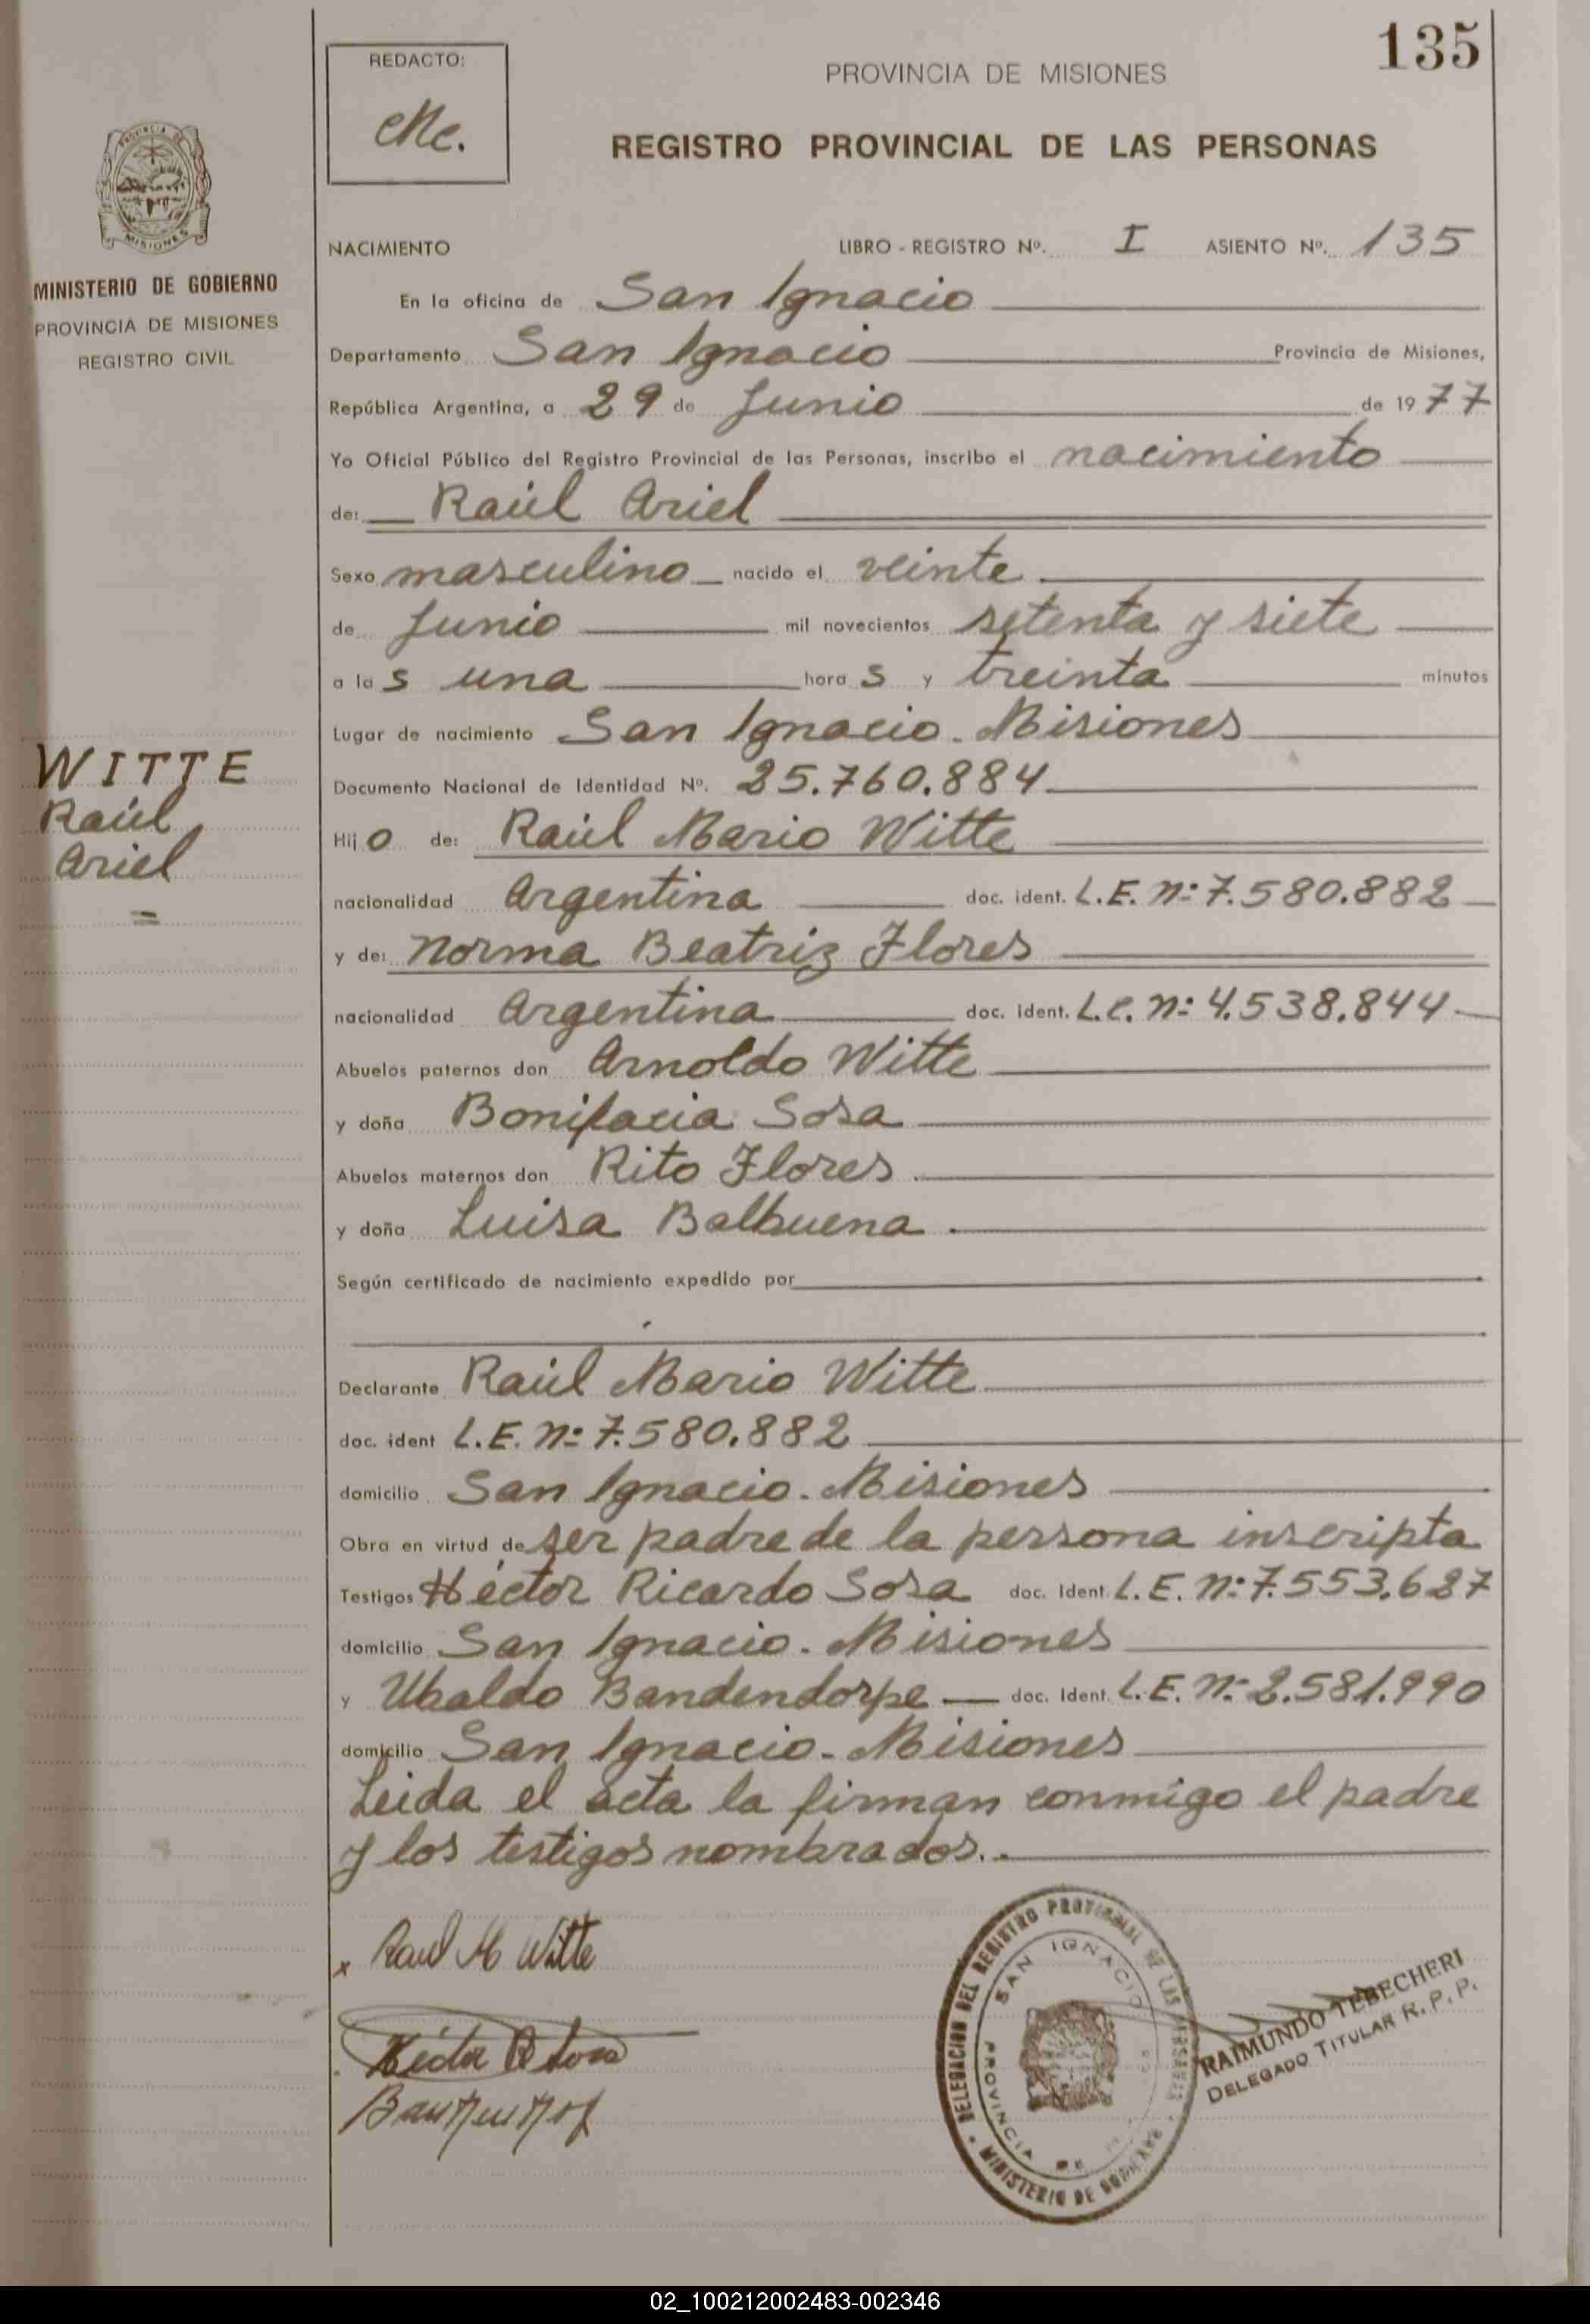 135
REDACTO:
PROVINCIA DE MISIONES
REGISTRO PROVINCIAL DE LAS PERSONAS
PROVINCIA DE
MISIONES
MINISTERIO DE GOBIERNO
PROVINCIA DE MISIONES
REGISTRO CIVIL
NACIMIENTO LIBRO - REGISTRO Nº. I ASIENTO Nº. 135
En la oficina de San Ignacio
Departamento San Ignacio Provincia de Misiones,
República Argentina, a 29 de Junio de 1977
Yo Oficial Público del Registro Provincial de las Personas, inscribo el nacimiento
de: Raúl Ariel
Sexo masculino nacido el veinte
de Junio mil novecientos setenta y siete
a las una horas y treinta minutos
Lugar de nacimiento San Ignacio. Misiones
WITTE
Raúl
Ariel
Documento Nacional de Identidad Nº. 25.760.884
Hijo de: Raúl Mario Witte
nacionalidad Argentina doc. ident. L.E. Nº 7.580.882
y de: Norma Beatriz Flores
nacionalidad Argentina doc. ident. L.C. Nº 4.538.844
Abuelos paternos don Arnoldo Witte
y doña Bonifacia Sosa
Abuelos maternos don Rito Flores
y doña Luisa Balbuena
Según certificado de nacimiento expedido por
Declarante Raúl Mario Witte
doc. ident L.E. Nº 7.580.882
domicilio San Ignacio. Misiones
Obra en virtud de ser padre de la persona inscripta
Testigos Héctor Ricardo Sosa doc. Ident. L.E. Nº 7.553.627
domicilio San Ignacio. Misiones
y Ubaldo Bandendorpe doc. Ident. L.E. Nº 2.581.990
domicilio San Ignacio. Misiones
Leida el acta la firman conmigo el padre
y los testigos nombrados.
x Raul M Witte
DELEGACION DEL REGISTRO PROVINCIAL DE LAS PERSONAS
SAN IGNACIO
PROVINCIA DE
MINISTERIO DE GOBIERNO
RAIMUNDO TEBECHERI
DELEGADO TITULAR R. P. P.
02_100212002483-002346